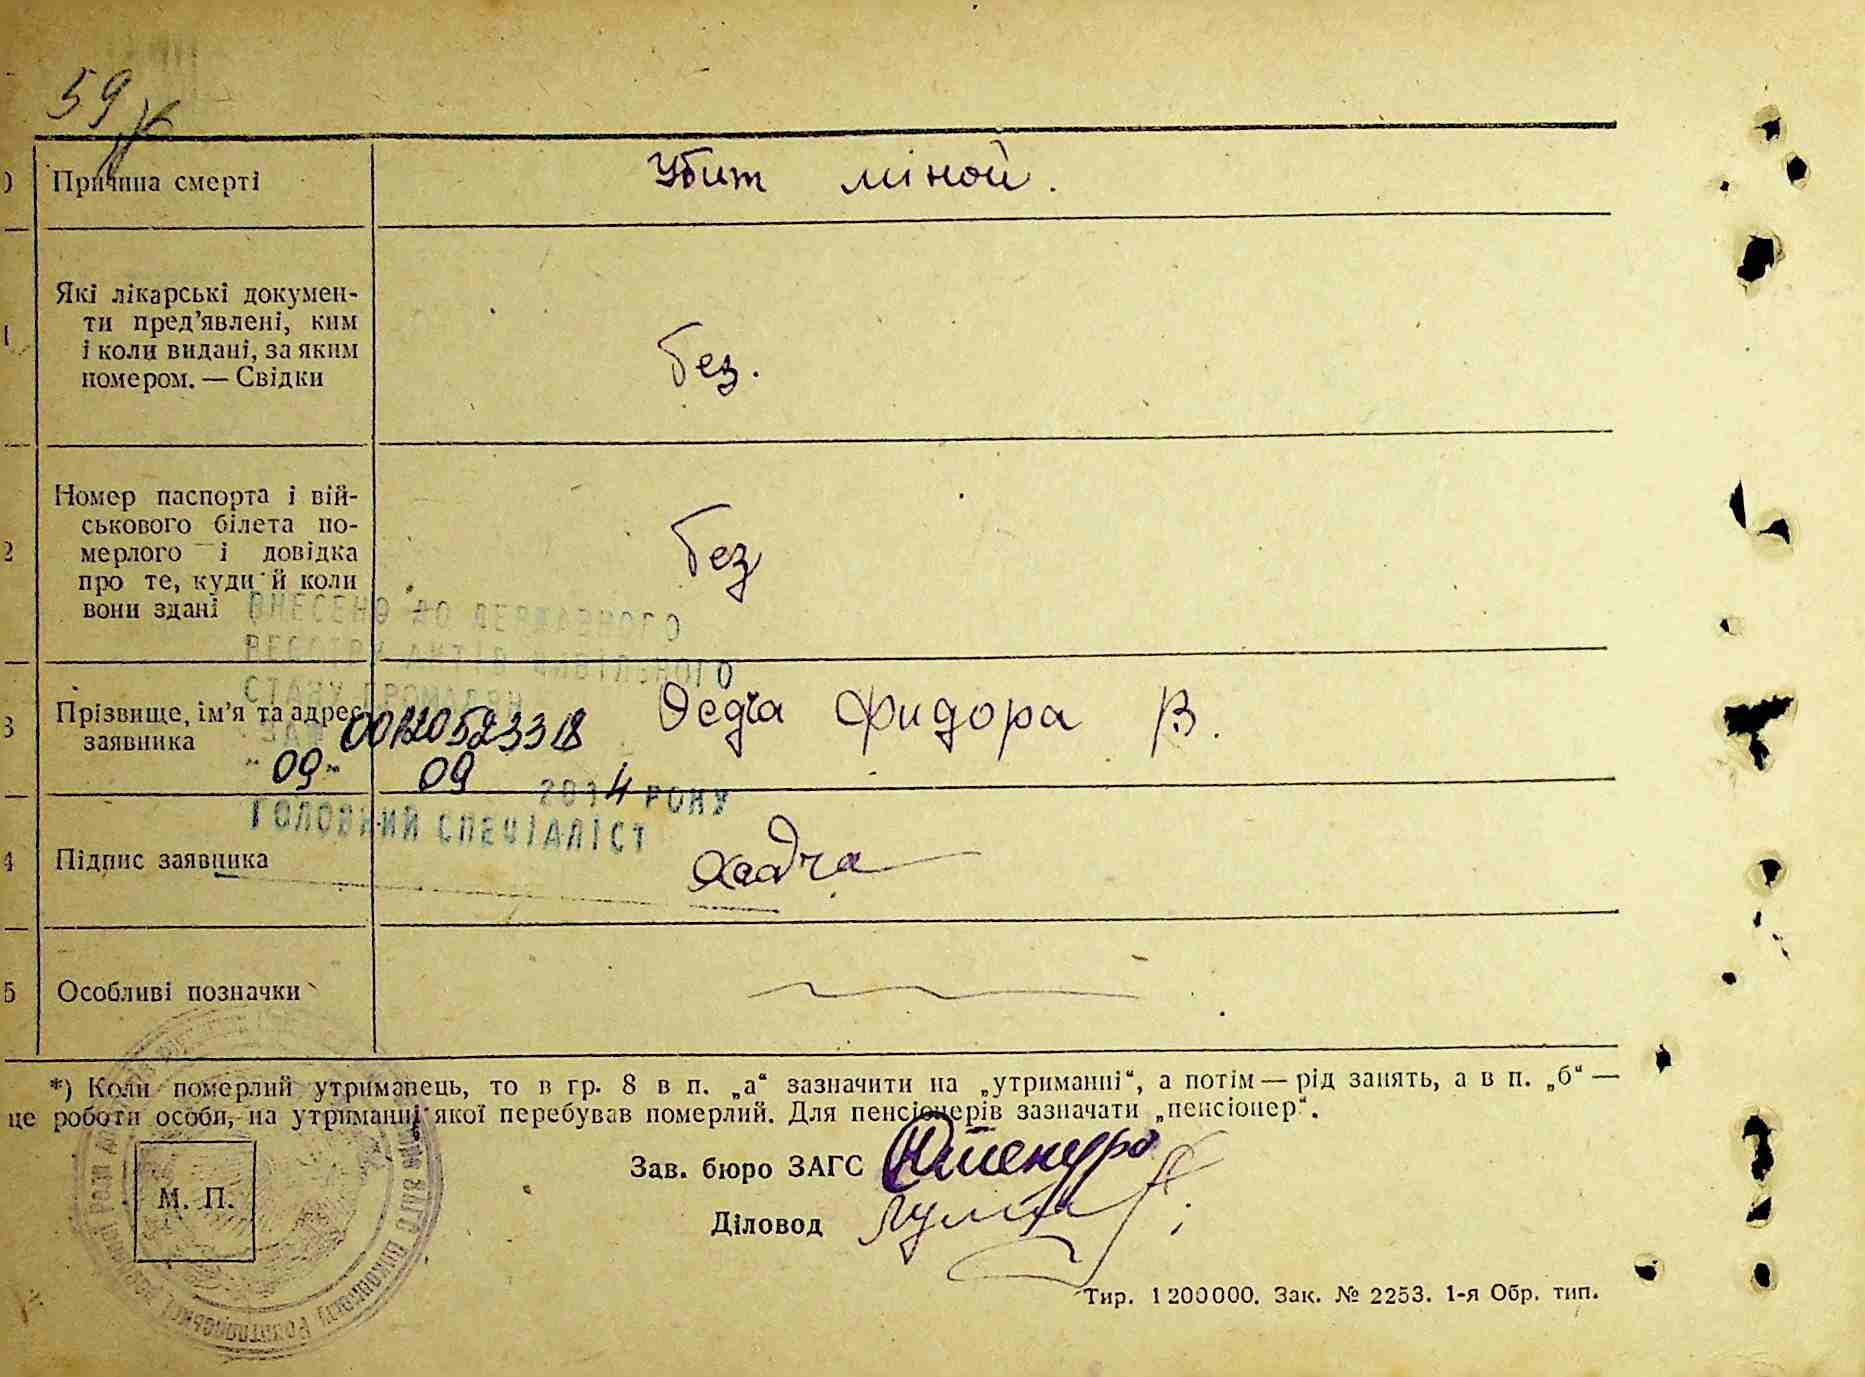 59
Причина смерті
Убит міной.
Які лікарські докумен-
ти пред'явлені, ким
і коли видані, за яким
номером. — Свідки
1
без.
Номер паспорта і вій-
ськового білета по-
мерлого і довідка
про те, куди й коли
вони здані
2
без
ВНЕСЕНО ДО ДЕРЖАВНОГО
РЕЄСТРУ АКТІВ ЦИВІЛЬНОГО
СТАНУ ГРОМАДЯН
3
Прізвище, ім'я та адрес
заявника
Фидора В.
00120523318
"09" 09 2014 РОКУ
ГОЛОВНИЙ СПЕЦІАЛІСТ
4
Підпис заявника
5
Особливі позначки
*) Коли померлий утриманець, то в гр. 8 в п. „а“ зазначити на „утриманні“, а потім — рід занять, а в п. „б“ —
це роботи особи, на утриманні якої перебував померлий. Для пенсіонерів зазначати „пенсіонер“.
Зав. бюро ЗАГС
М. П.
Діловод
Тир. 1 200 000. Зак. № 2253. 1-я Обр. тип.